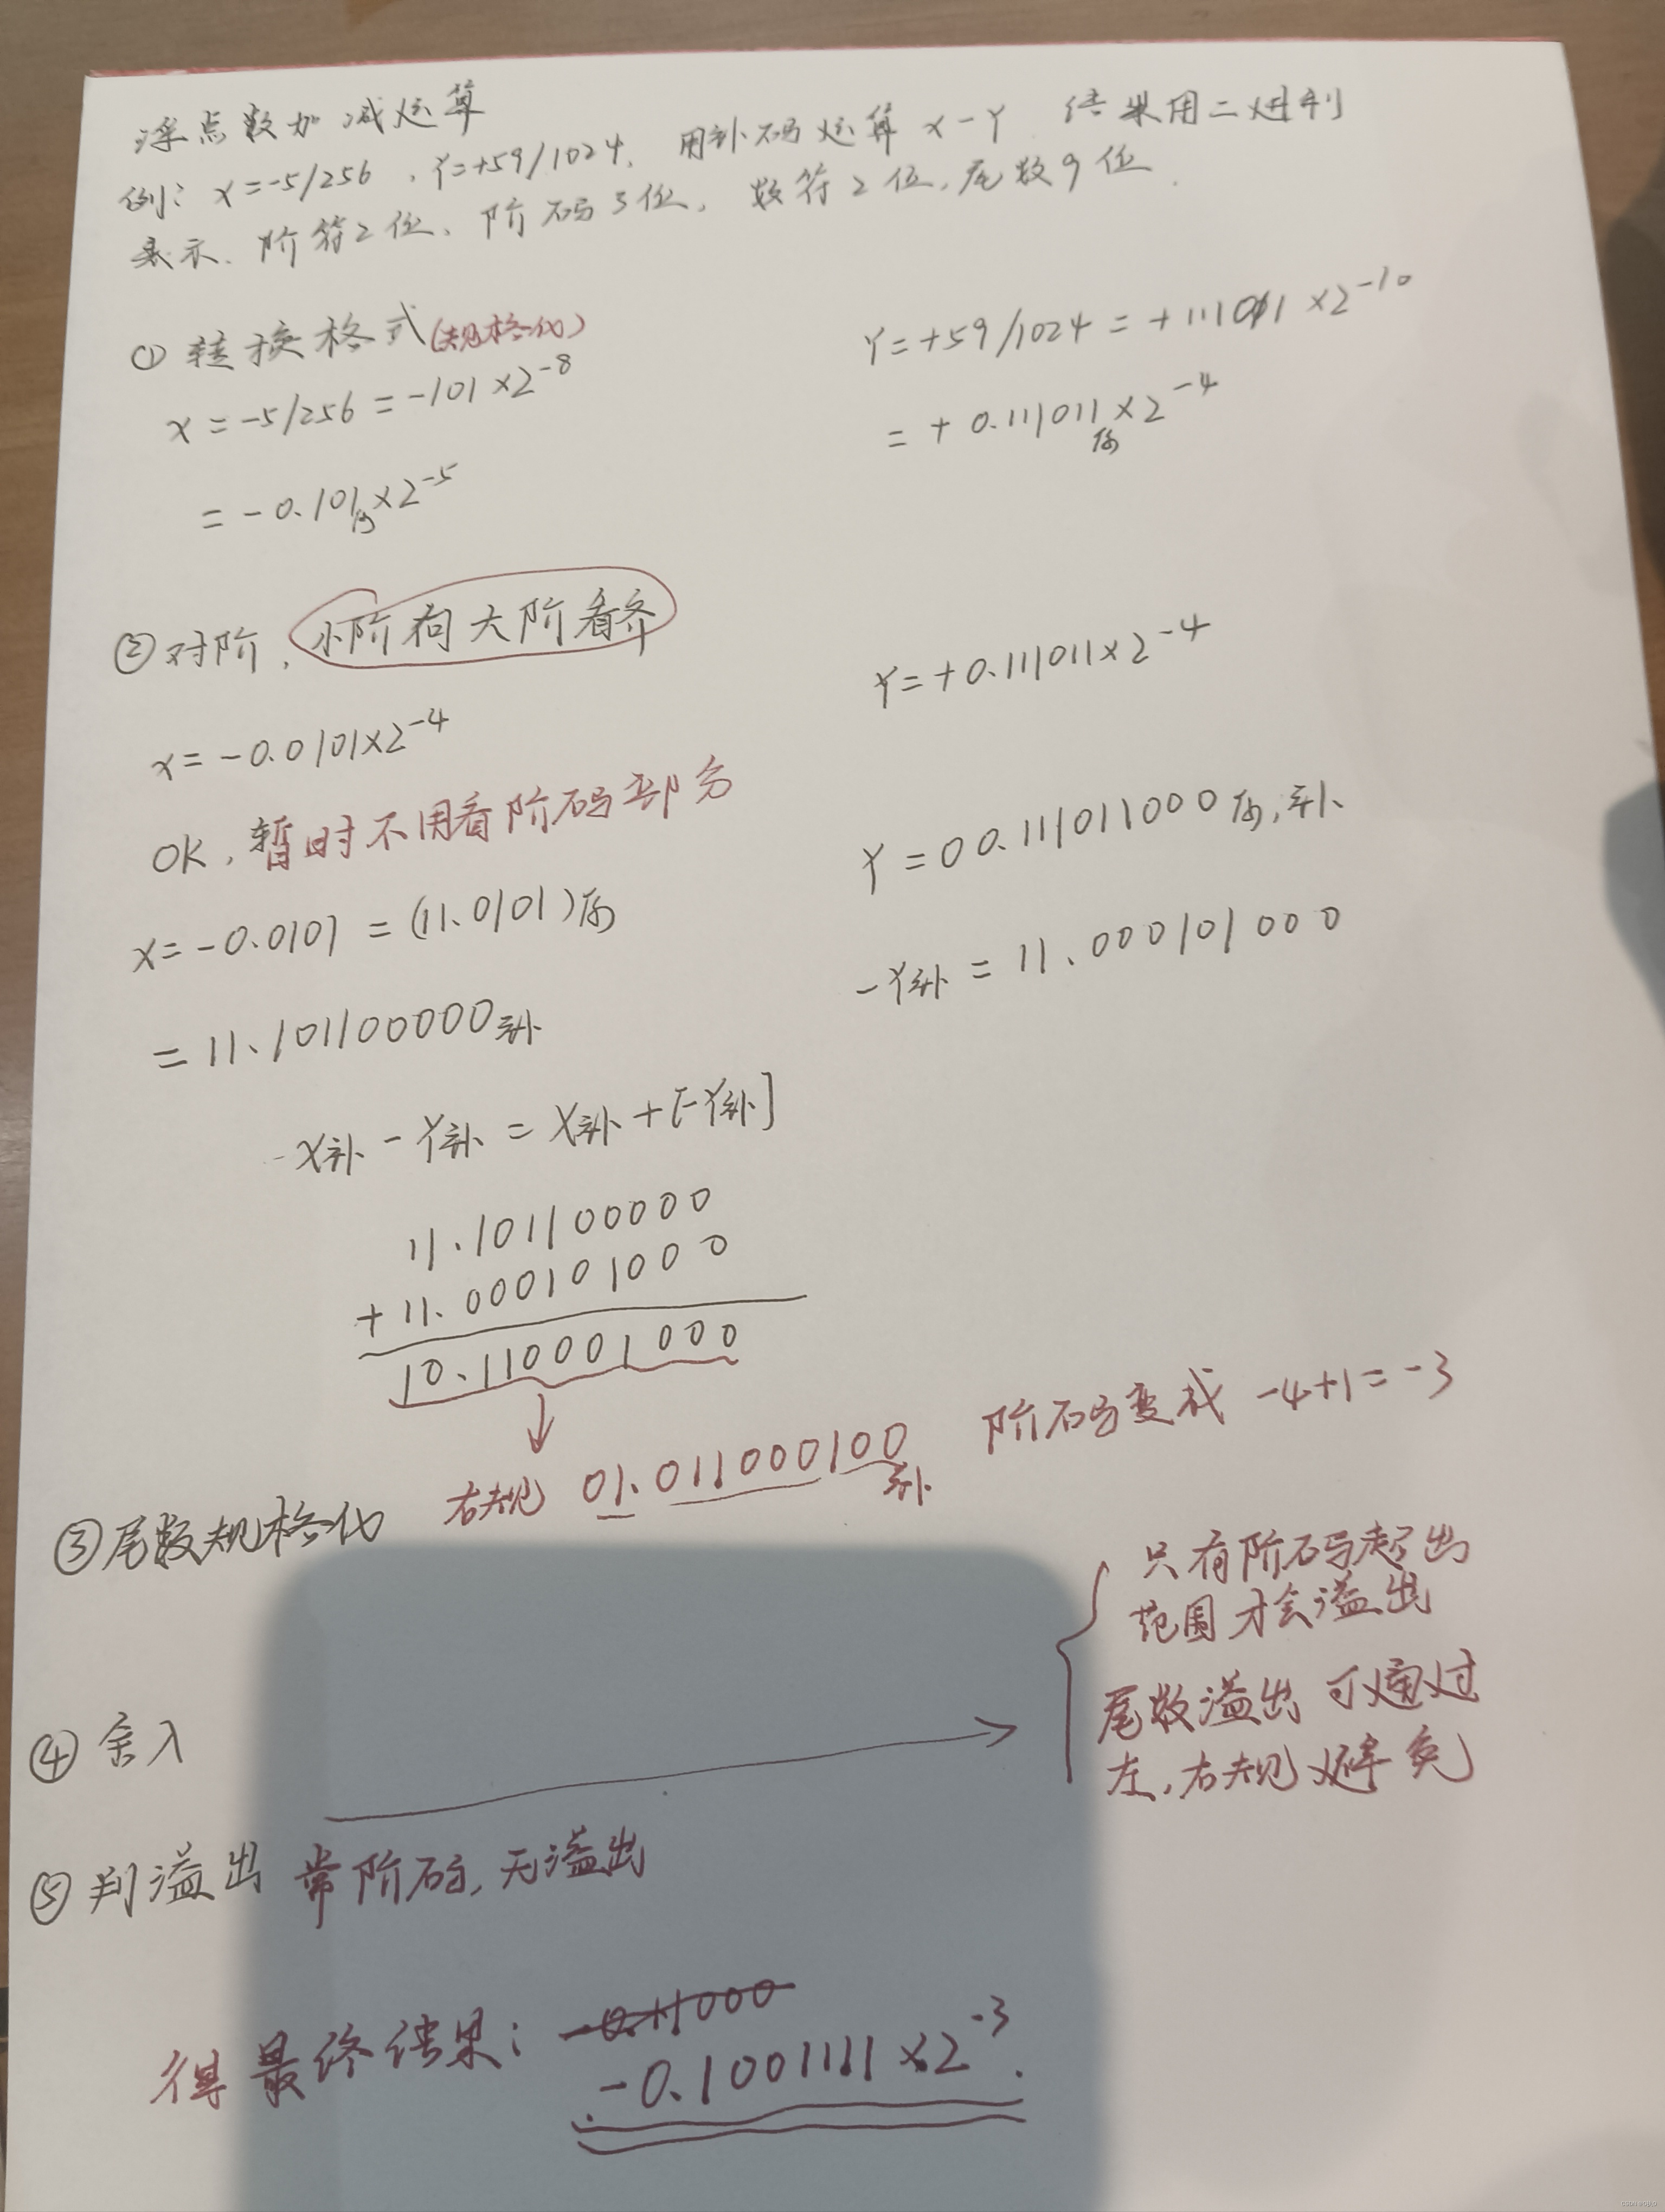 浮点数加减运算
例: x=-5/256 , Y=+59/1024, 用补码运算 x-Y 结果用二进制
表示. 阶符2位、阶码3位, 数符2位,尾数9位.
① 转换格式(规格化)
x = -5/256 = -101×2^-8
= -0.101原×2^-5
Y=+59/1024 = +111011×2^-10
= + 0.111011原×2^-4
② 对阶, 小阶向大阶看齐
x=-0.0101×2^-4
Y=+0.111011×2^-4
OK,暂时不用看阶码部分
x=-0.0101 = (11.0101)原
= 11.101100000补
Y=00.111011000原,补
-Y补 = 11.000101000
x补 - Y补 = X补+[-Y补]
11.101100000
+ 11.000101000
10.110001000
③尾数规格化 右规 01.011000100补 阶码变成 -4+1=-3
④ 舍入
只有阶码超出
范围才会溢出
尾数溢出可通过
左,右规避免
⑤判溢出 常阶码,无溢出
得最终结果: -0.11000
-0.1001111×2^-3.